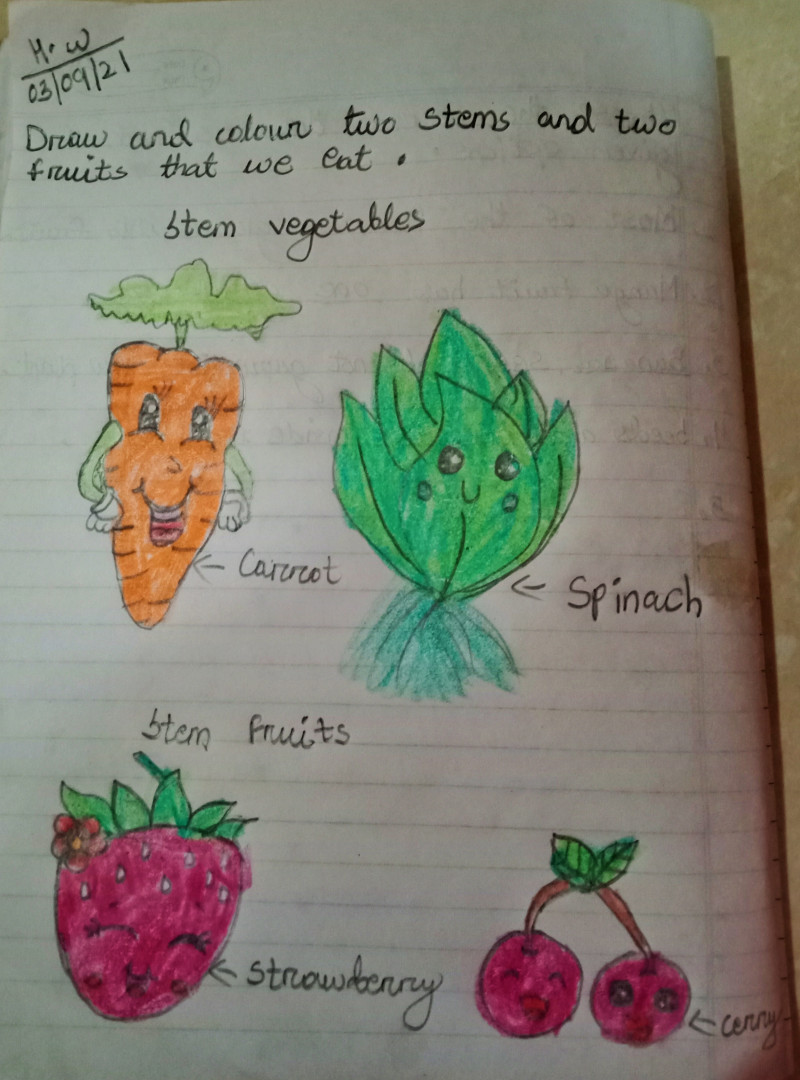 H.W
03/09/21
Draw and colour two stems and two
fruits that we eat .
Stem vegetables
Carrot
Spinach
Stem fruits
Strawberry
cerry